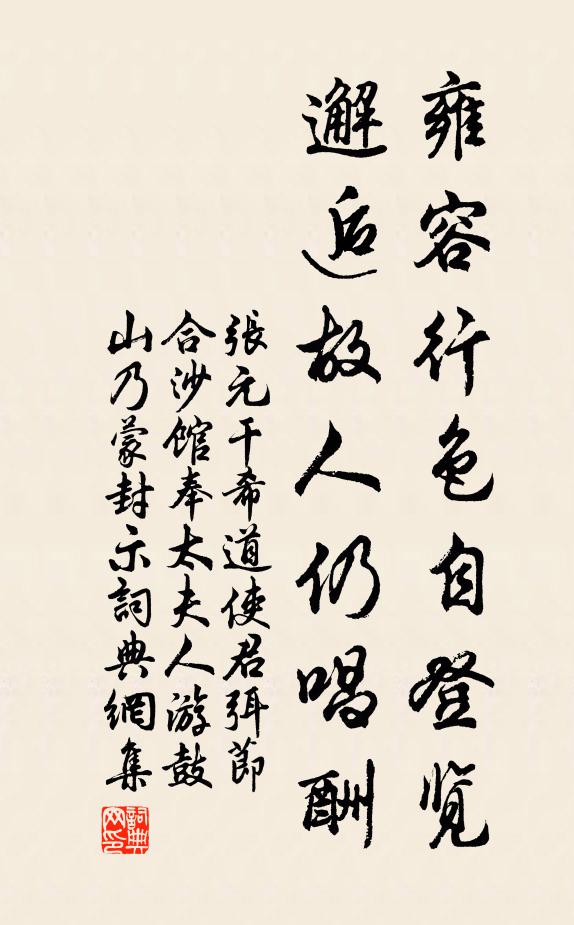 雍容行色自登览
邂逅故人仍唱酬
張元干希道使君弭節
合沙館奉太夫人游鼓
山乃蒙封示詞典網集
詞典
网印